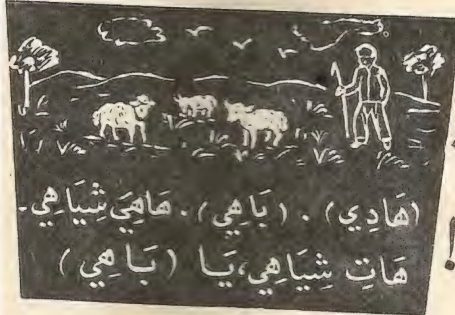 (هَادِي) . (بَاهِي) . هَاهِيَ شِيَاهِي .
هَاتِ شِيَاهِي، يَا (بَاهِي)
!